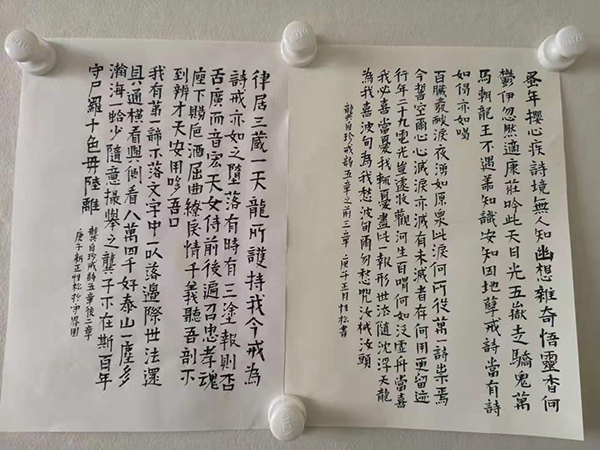 蚤年攖心疾詩境無人知幽想雜奇悟靈香何
鬱伊忽然適康莊吟此天日光五嶽走驕鬼萬
馬朝龍王不遇善知識安知因地孽戒詩當有詩
如偈亦如喝
百臟發酸淚夜湧如原泉此淚何所從萬一詩祟焉
今誓空爾心心滅淚亦滅有未滅者存何用更留迹
行年二十九電光豈遽收觀河生百喟何如泛虛舟當喜
我必喜當憂我輒憂盡此一報形世法隨沉浮天龍
為我喜波旬為我愁波旬爾勿愁咒汝械汝頭
龔自珍戒詩五章之前三章 庚子正月性松書
律居三藏一天龍所護持我今戒為
詩戒亦如之墮落有時有三塗報則否
舌廣而音宏天女侍前後遍召忠孝魂
座下賜卮酒屈曲繚戾情千義聽吾剖不
到辨才天安用哆吾口
我有第一諦不落文字中一以落邊際世法還
具通橫看與側看八萬四千好泰山一塵多
瀚海一蛤少隨意撮舉之龔子不在斯百年
守尸羅十色毋陸離
龔自珍戒詩五章後二章
庚子新正性松於守界園